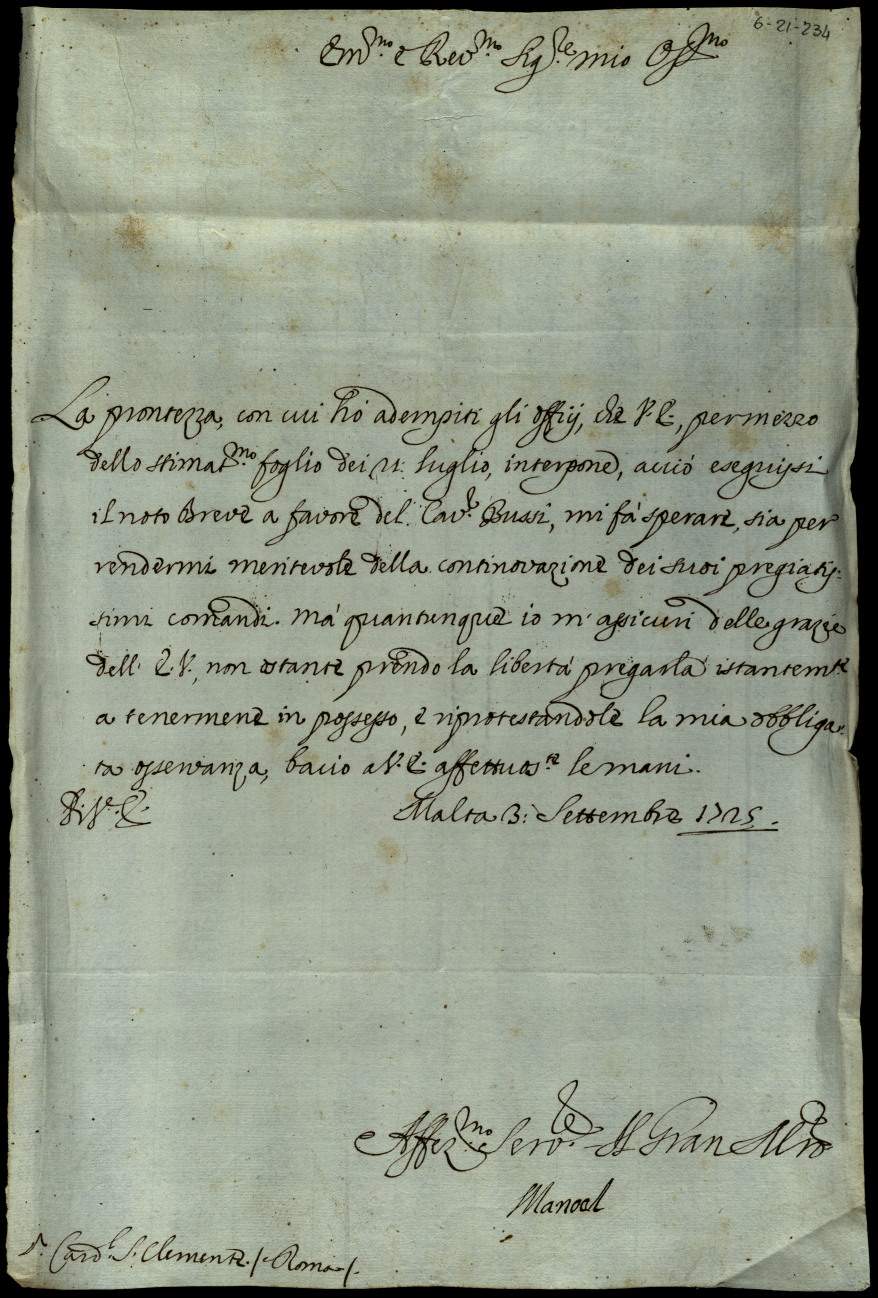 6-21-234
Em.mo e Rev.mo Sig.re mio Oss.mo
La prontezza, con cui hò adempiti gli officij, che V. E., per mezzo
dello stimat.mo foglio dei 21. luglio, interpone, acciò eseguissi
il noto Breve a favore del Cav.re Bussi, mi fà sperare, sia per
rendermi meritevole della continovazione dei suoi pregiatis-
simi comandi. Mà quantunque io m'assicuri delle grazie
dell' E. V., non ostante prendo la libertà pregarla istantem.te
a tenermene in possesso, e riprotestandole la mia obbliga-
ta osservanza, bacio a V. E. affettuos.te le mani.
Di V.E.
Malta 3: Settembre 1725.
Affez.mo Serv.re Il Gran M.ro
Manoel
S.r Card.l S. Clemente /: Roma :/